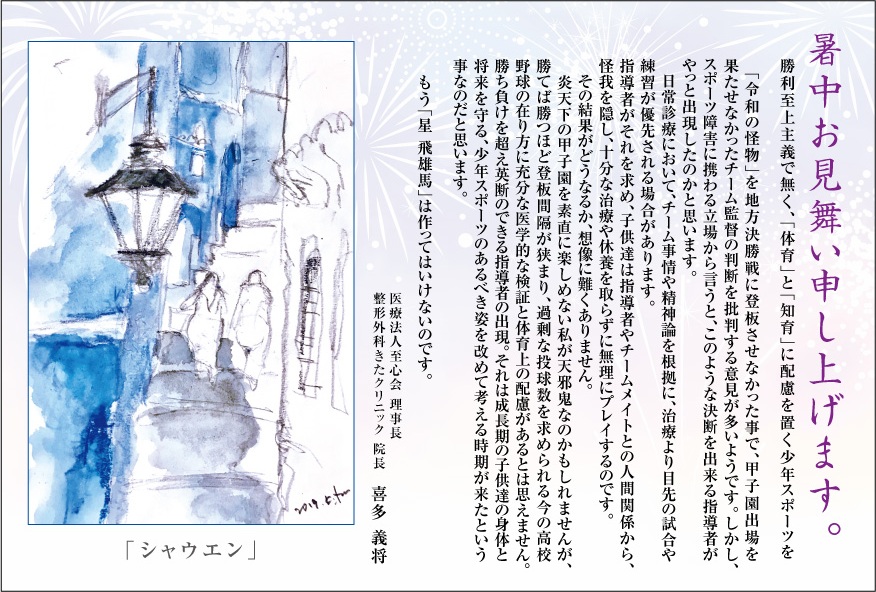 暑中お見舞い申し上げます。
勝利至上主義で無く、「体育」と「知育」に配慮を置く少年スポーツを
「令和の怪物」を地方決勝戦に登板させなかった事で、甲子園出場を
果たせなかったチーム監督の判断を批判する意見が多いようです。しかし、
スポーツ障害に携わる立場から言うと、このような決断を出来る指導者が
やっと出現したのかと思います。
日常診療において、チーム事情や精神論を根拠に、治療より目先の試合や
練習が優先される場合があります。
指導者がそれを求め、子供達は指導者やチームメイトとの人間関係から、
怪我を隠し、十分な治療や休養を取らずに無理にプレイするのです。
その結果がどうなるか、想像に難くありません。
炎天下の甲子園を素直に楽しめない私が天邪鬼なのかもしれませんが、
勝てば勝つほど登板間隔が狭まり、過剰な投球数を求められる今の高校
野球の在り方に充分な医学的な検証と体育上の配慮があるとは思えません。
勝ち負けを超え英断のできる指導者の出現。それは成長期の子供達の身体と
将来を守る、少年スポーツのあるべき姿を改めて考える時期が来たという
事なのだと思います。
もう「星 飛雄馬」は作ってはいけないのです。
医療法人至心会 理事長
整形外科きたクリニック 院長 喜多 義将
「シャウエン」